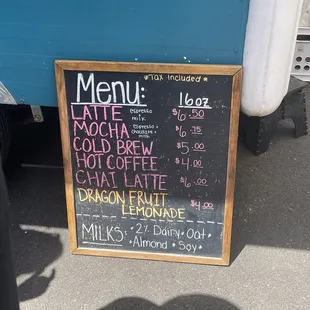 *Tax included*
Menu: 16oz
LATTE espresso + milk $6.50
MOCHA espresso + chocolate + milk $6.75
COLD BREW $5.00
HOT COFFEE $4.00
CHAI LATTE $6.00
DRAGON FRUIT
LEMONADE $4.00
MILKS: • 2% Dairy • Oat •
• Almond • Soy •